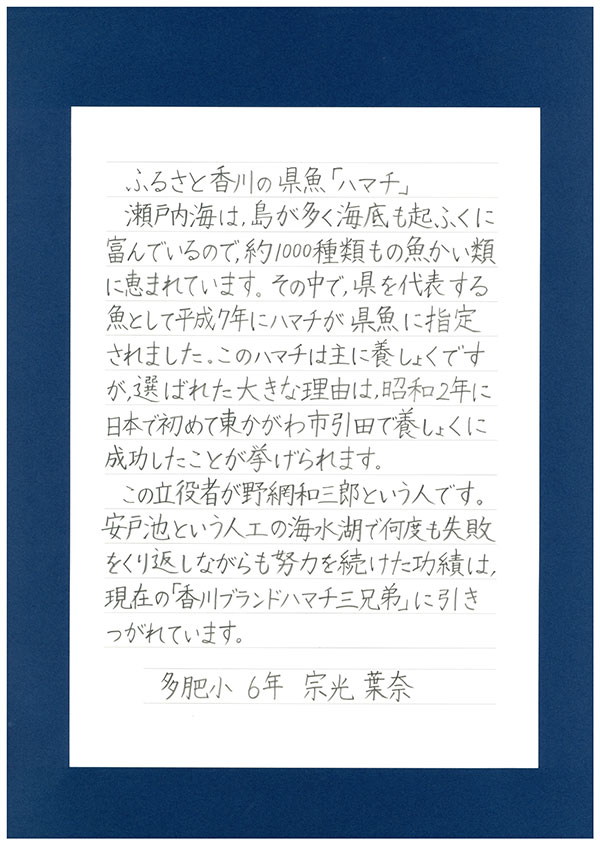 ふるさと香川の県魚「ハマチ」
瀬戸内海は,島が多く海底も起ふくに
富んでいるので,約1000種類もの魚かい類
に恵まれています。その中で,県を代表する
魚として平成7年にハマチが県魚に指定
されました。このハマチは主に養しょくです
が,選ばれた大きな理由は,昭和2年に
日本で初めて東かがわ市引田で養しょくに
成功したことが挙げられます。
この立役者が野網和三郎という人です。
安戸池という人工の海水湖で何度も失敗
をくり返しながらも努力を続けた功績は,
現在の「香川ブランドハマチ三兄弟」に引き
つがれています。
多肥小 6年 宗光 葉奈